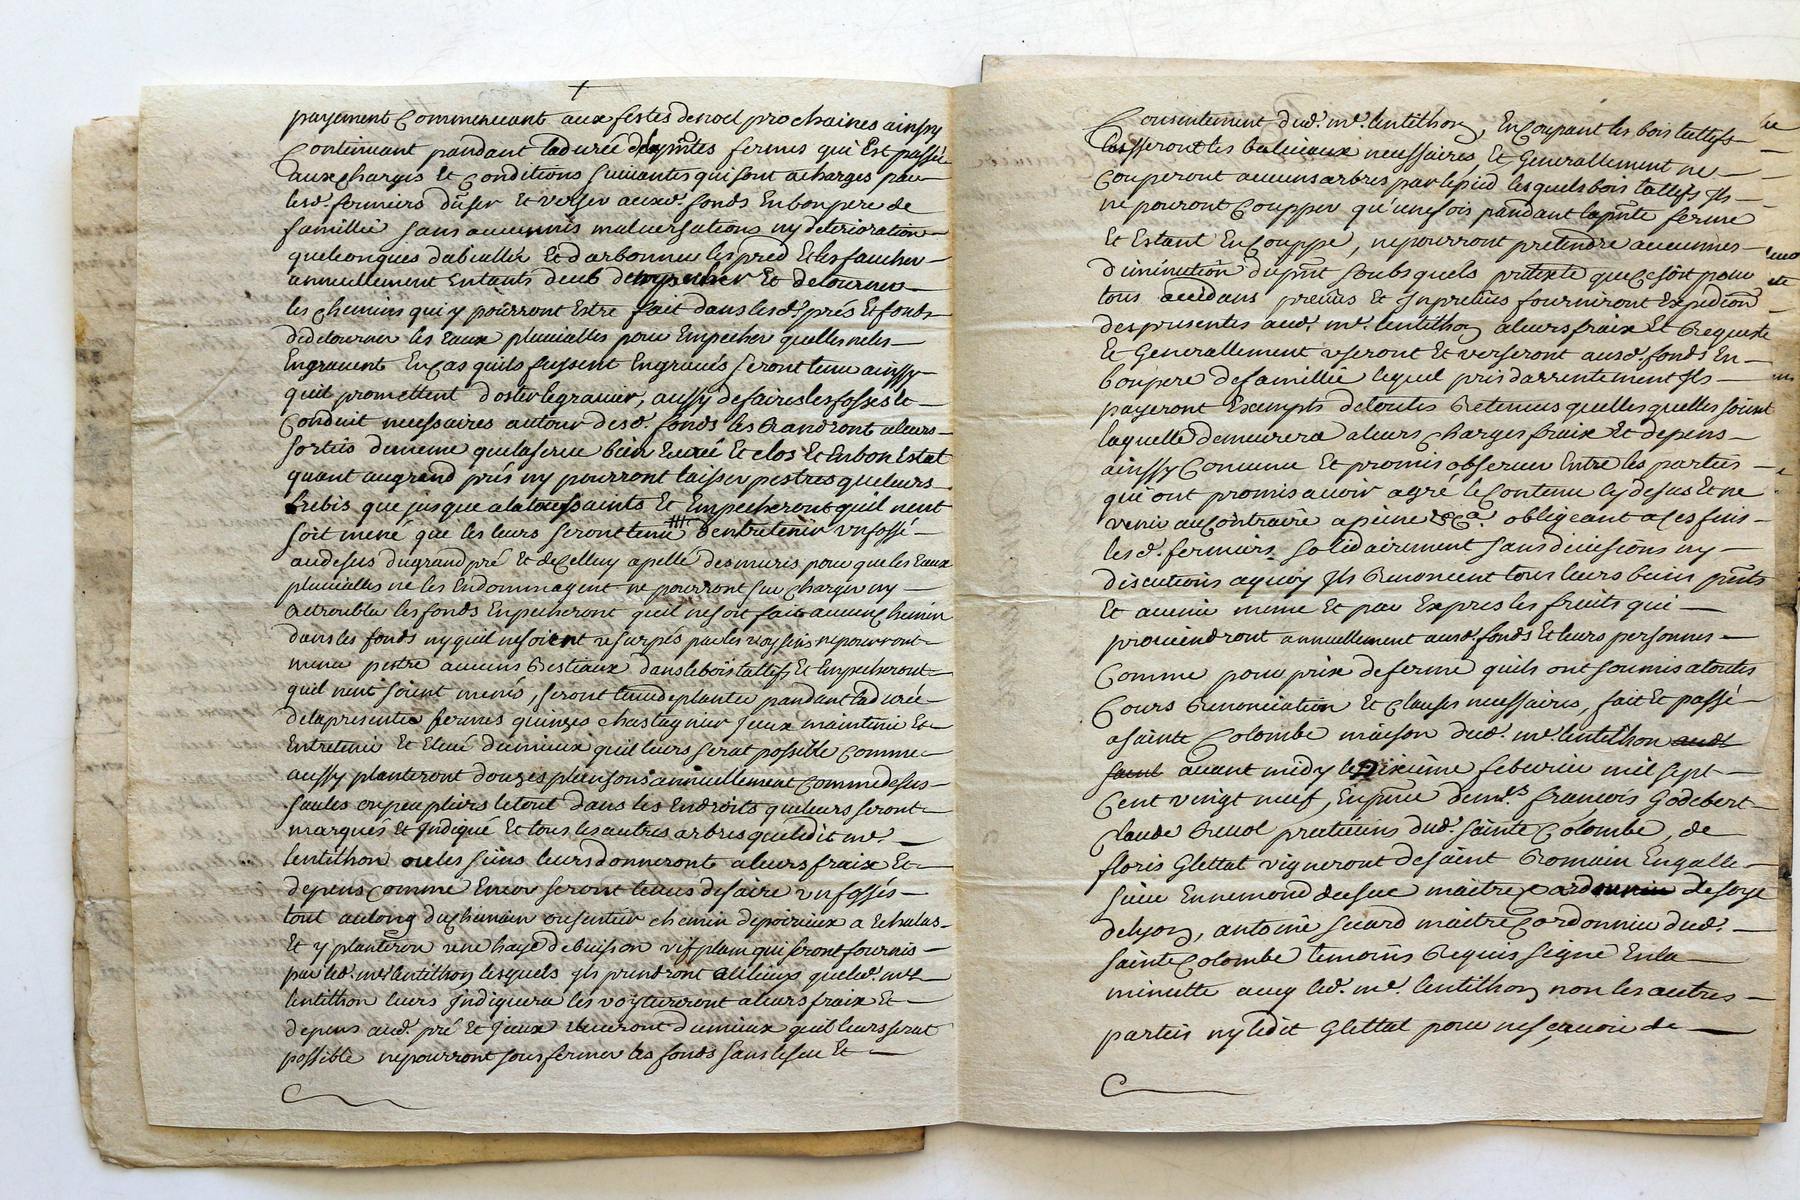 payement Commencant aux festes denoel prochaines ainssy
Continuant pandant ladurée desptes fermes qui Est passée
aux charges et Conditions suivantes qui sont acharges pau
lesd. fermiers duser Et verser auxd. fonds Enbonpere de
famillie sans aucunnis malversations ny deterioration
quelconques dabeallér Et darbonner les pred Etlesfaucher
annuellement Entants deub Et detourner
les chemins quiy pourront Estre fait dans lesd. prés Et fonds
dedetourner les Eaux pluvialles pour Empecher quelles neles
Engravent Encas quils fussent Engravés seront tenu ainssy
quil promettent doster legravier, aussy defaire les fossés Et
Conduit nessaires autour desd. fonds les Randront aleurs
sorties dememe quelaserve bien Curé Et clos Et Enbon Estat
quant augrand prés ny pourront laisser pestres queleurs
brebis que jusque alatoussaints Et Empecheront quil nent
soit mené que les leurs seront tenu dentretenir vnfossé
audesus dugrandpré Et deCelluy apellé desmuris pour que les Eaux
pluvialles ne les Endommagent ne pourront surcharger ny
Retroubler les fonds Enpecheront quil nesoit fait aucun chemin
dans les fonds ny quil nesoient vesurpés par les voyssins nepourront
mener pestre aucuns Bestiaux dans lebois tallifs Et Empecheront
quil nent soient menés, seront tenu deplanter pandant ladurée
delapresente fermes quinzes chastagnier jeux maintenir Et
Entretenir Et Elevé dumieux quil leurs serat possible Comme
aussy planteront douzes plansons annuellement Comme desus
saules ou peupliers letout dans les Endroits queleurs seront
marqués Et jndiqué Et tous les autres arbres queledit me.
lentithon ou les siens leurs donneront aleurs fraix Et
depens Comme Encor seront tenus defaire vn fossés
tout aulong duchemain ou sentier chemin depoirieux a Echalas
Et y planteron vne haye debuisson vif plam qui seront fournis
par led. me. lentithon lesquels jls prendront aulieux queled. me
lentithon leurs jndiquera les voytureront aleurs fraix Et
depens aud. pré Et jeux Eleveront dumieux quil leurs serat
possible nepourront sousfermer les fonds sans lesceu Et
Consentement dud. me. lentithon, Encoupant les bois tallifs
lasseront les baliveaux nessaires Et Generallement ne
Couperont aucuns arbres par lepied lesquels bois tallifs jls
ne pouront Coupper qu'unefois pandant lapnte ferme
Et Estant Encouppe, nepourront pretendre aucunnes
diminution dupnt soubs quels pretexte que Ce soit pour
tous accidans preveus Et jnpreveus fourniront Expedion
des presentes aud. me. lentithon aleurs fraix Et Requeste
Et Generallement vseront Et verseront ausd. fonds En
bonpere defamillie lequel pris darrentement jls
payeront Exempts detoutes Retenues quelles quelles soient
laquelle demeurera aleurs charges fraix Et depens
ainssy Convenu Et promis observer Entre les parties
qui ont promis avoir agré le Contenu Cy desus Et ne
venir auContraire apeine &ca. obligeant a Ces fins
lesd. fermiers solidairement sans divisions ny
discutions aquoy jls Renoncent tous leurs biens pnts
Et avenir meme Et par Expres les fruits qui
proviendront annuellement ausd. fonds Et leurs personnes
Comme pour prix deferme quils ont soumis atoutes
Cours Renonciation Et clauses nessaires, fait Et passé
asainte Colombe maison dud. me. lentithon
avant midy le Dixième febvrier mil sept
Cent vingt neuf, Enpnce demrs. francois Godebert
claude Revol praticiens dud. sainte Colombe, de
floris Glettat vigneront desaint Romain Engalle
sieur Ennemond maitre desoye
delyon, antoine sicard maitre Cordonnier dud.
sainte Colombe temoins Requis signé Enla
minutte avey led. me. lentithon non les autres
parties ny ledit Glettat pour ne scavoir de